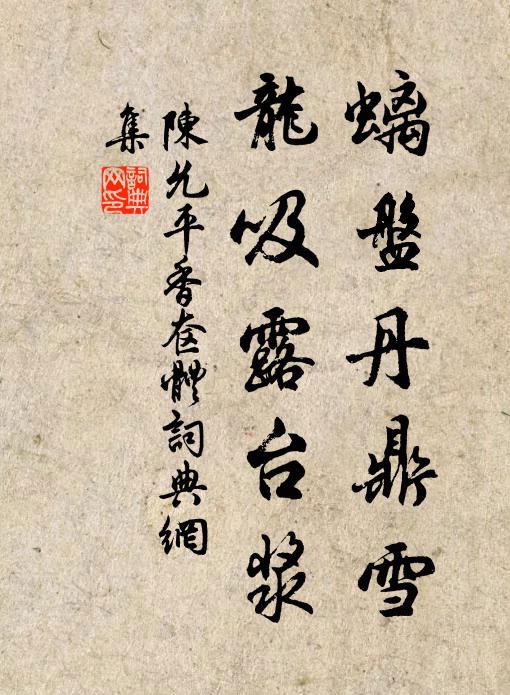 螭盤丹鼎雪
龍吸露台漿
陳允平香奩體詞典網
集
詞典
网印